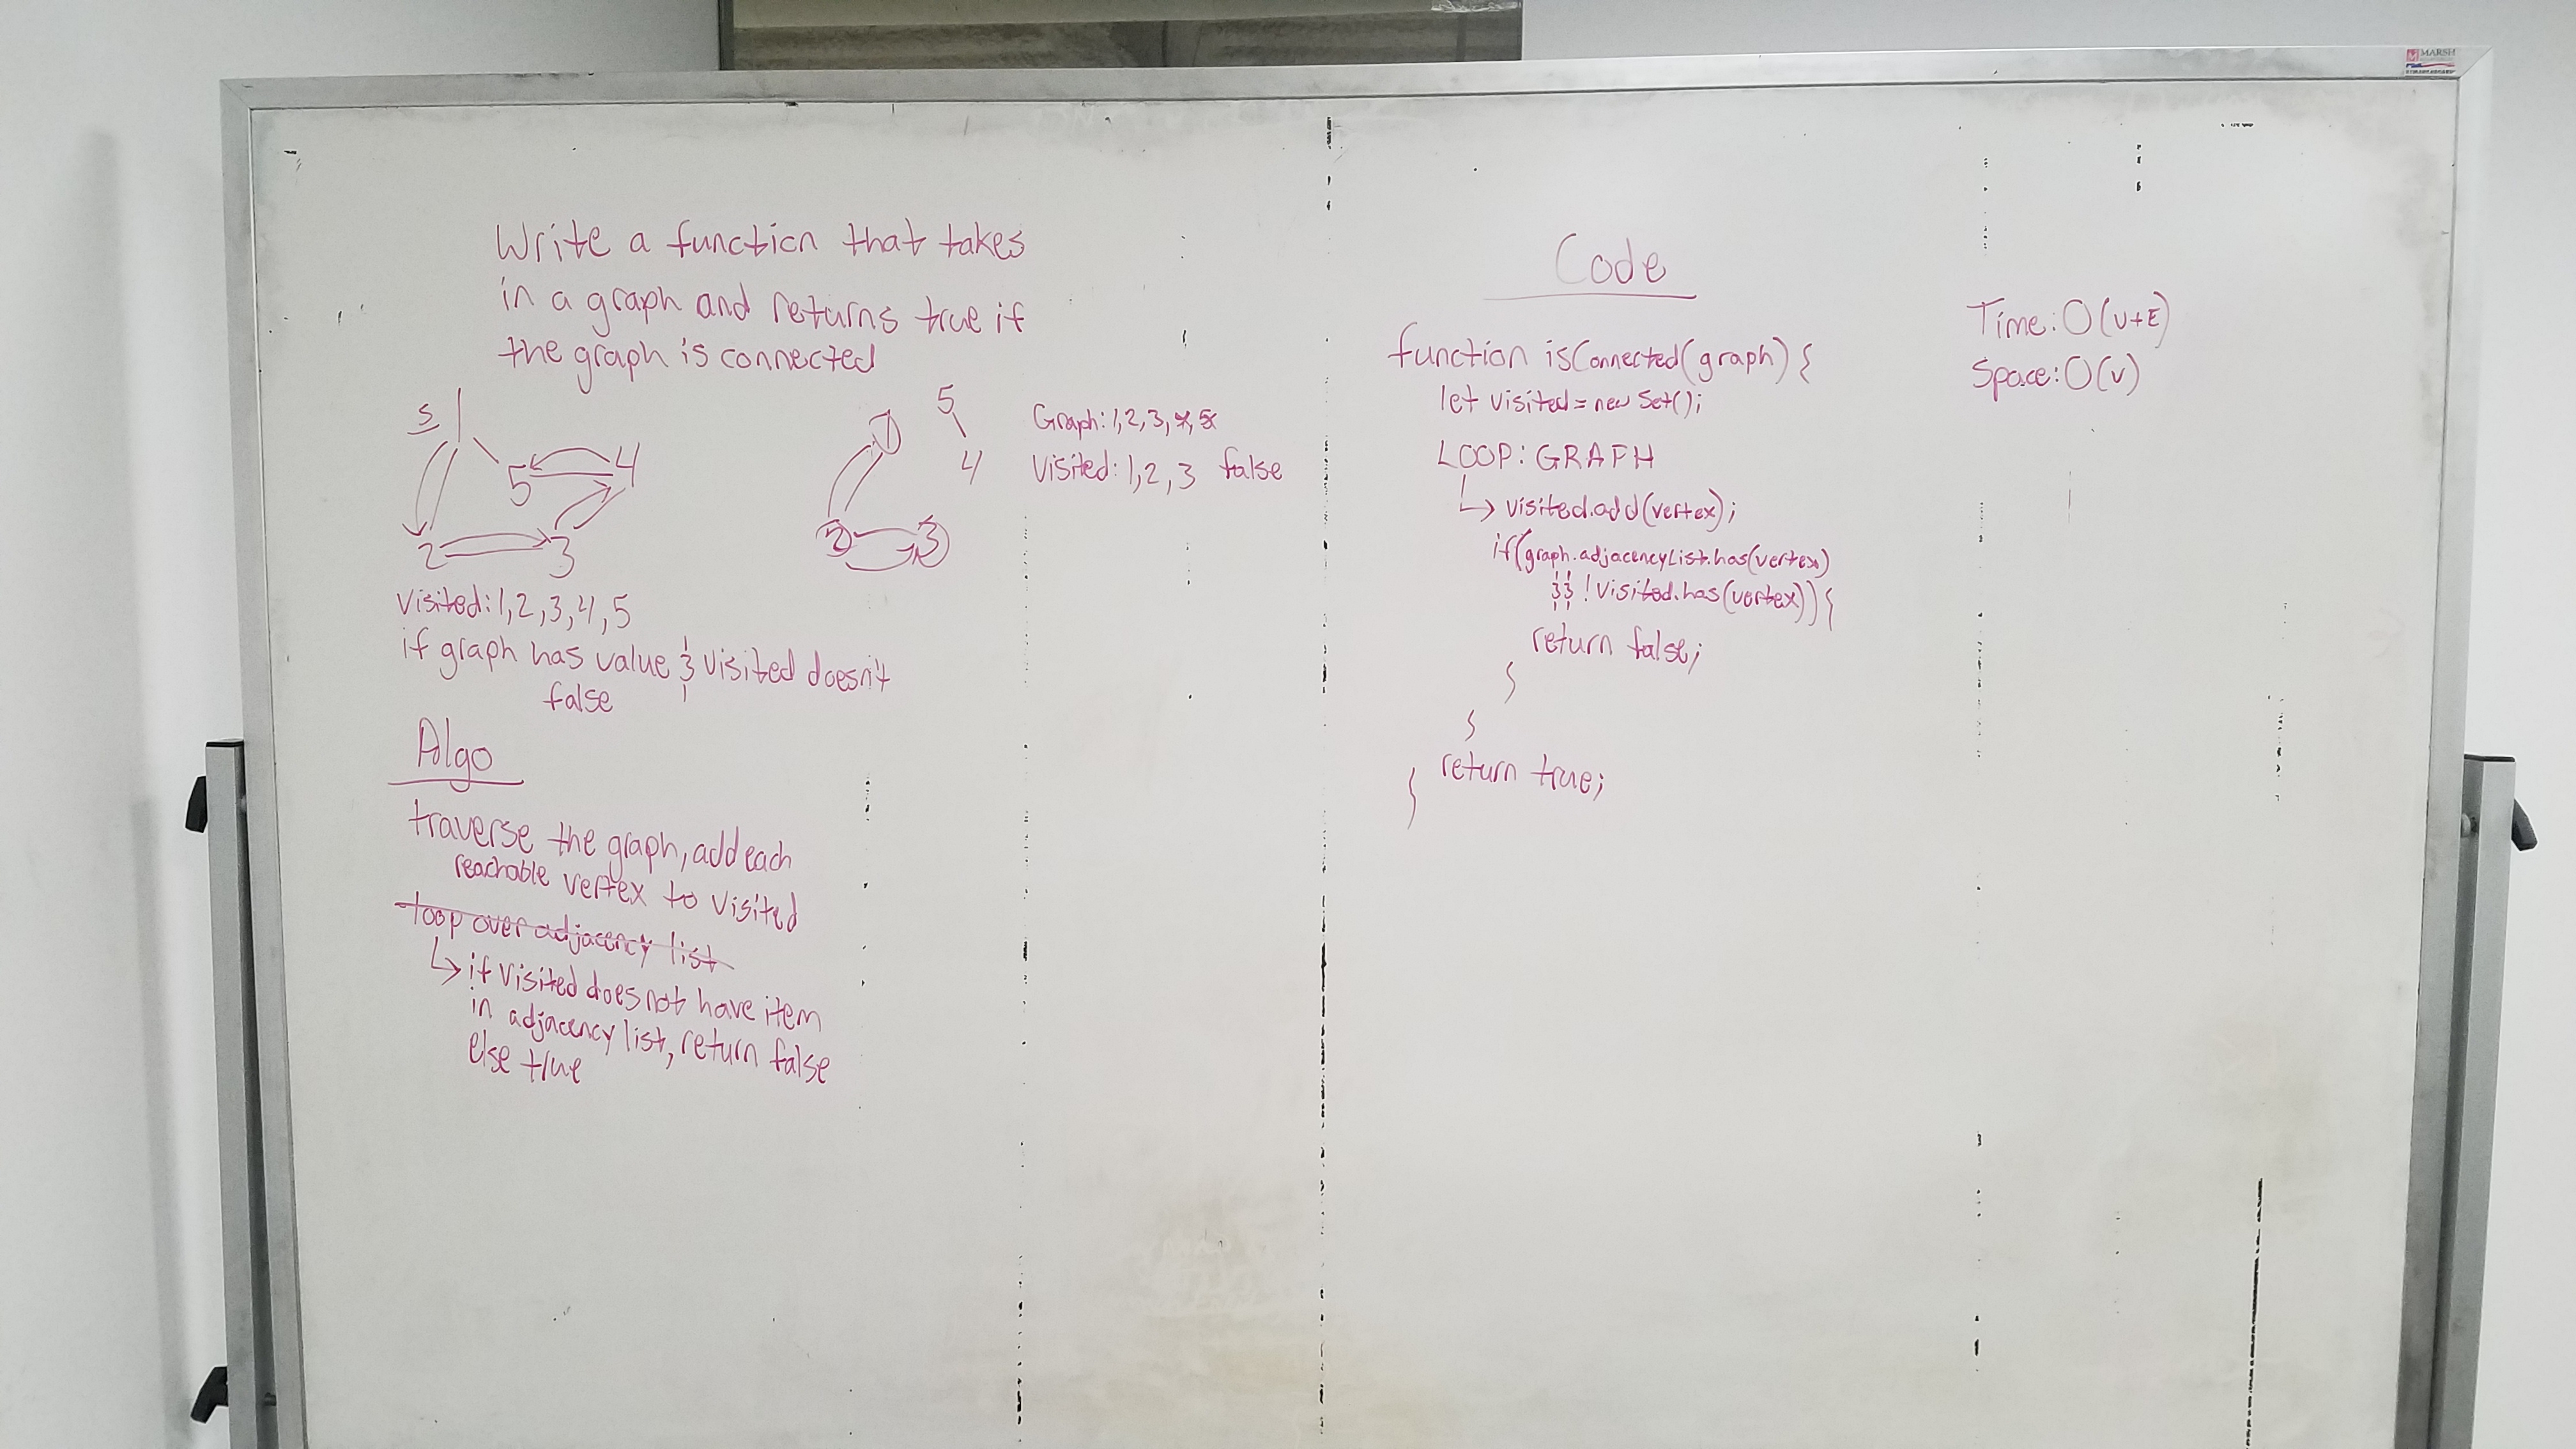 Write a function that takes
in a graph and returns true if
the graph is connected
S 1
5 4
2 3
1 5
4
2 3
Graph: 1, 2, 3, 4, 5
Visited: 1, 2, 3 false
Visited: 1, 2, 3, 4, 5
if graph has value & visited doesn't
false
Algo
traverse the graph, add each
reachable vertex to visited
loop over adjacency list
↳ if visited does not have item
in adjacency list, return false
else true
Code
function isConnected(graph) {
let visited = new Set();
LOOP: GRAPH
↳ visited.add(vertex);
if(graph.adjacencyList.has(vertex)
&& !visited.has(vertex)) {
return false;
}
}
return true;
}
Time: O(V+E)
Space: O(V)
MARSH